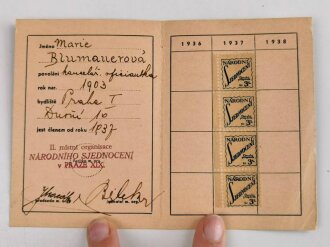 Jméno Marie
Blumauerová
povolání kancelář. oficiantka
rok nar. 1903
bydliště Praha I
Dušní 10
jest členem od roku 1937
II. místní organisace
NÁRODNÍHO SJEDNOCENÍ
v PRAZE XIX.
1936 1937 1938
NÁRODNÍ
SJEDNOCENÍ
3K
NÁRODNÍ
SJEDNOCENÍ
3K
NÁRODNÍ
SJEDNOCENÍ
3K
NÁRODNÍ
SJEDNOCENÍ
3K